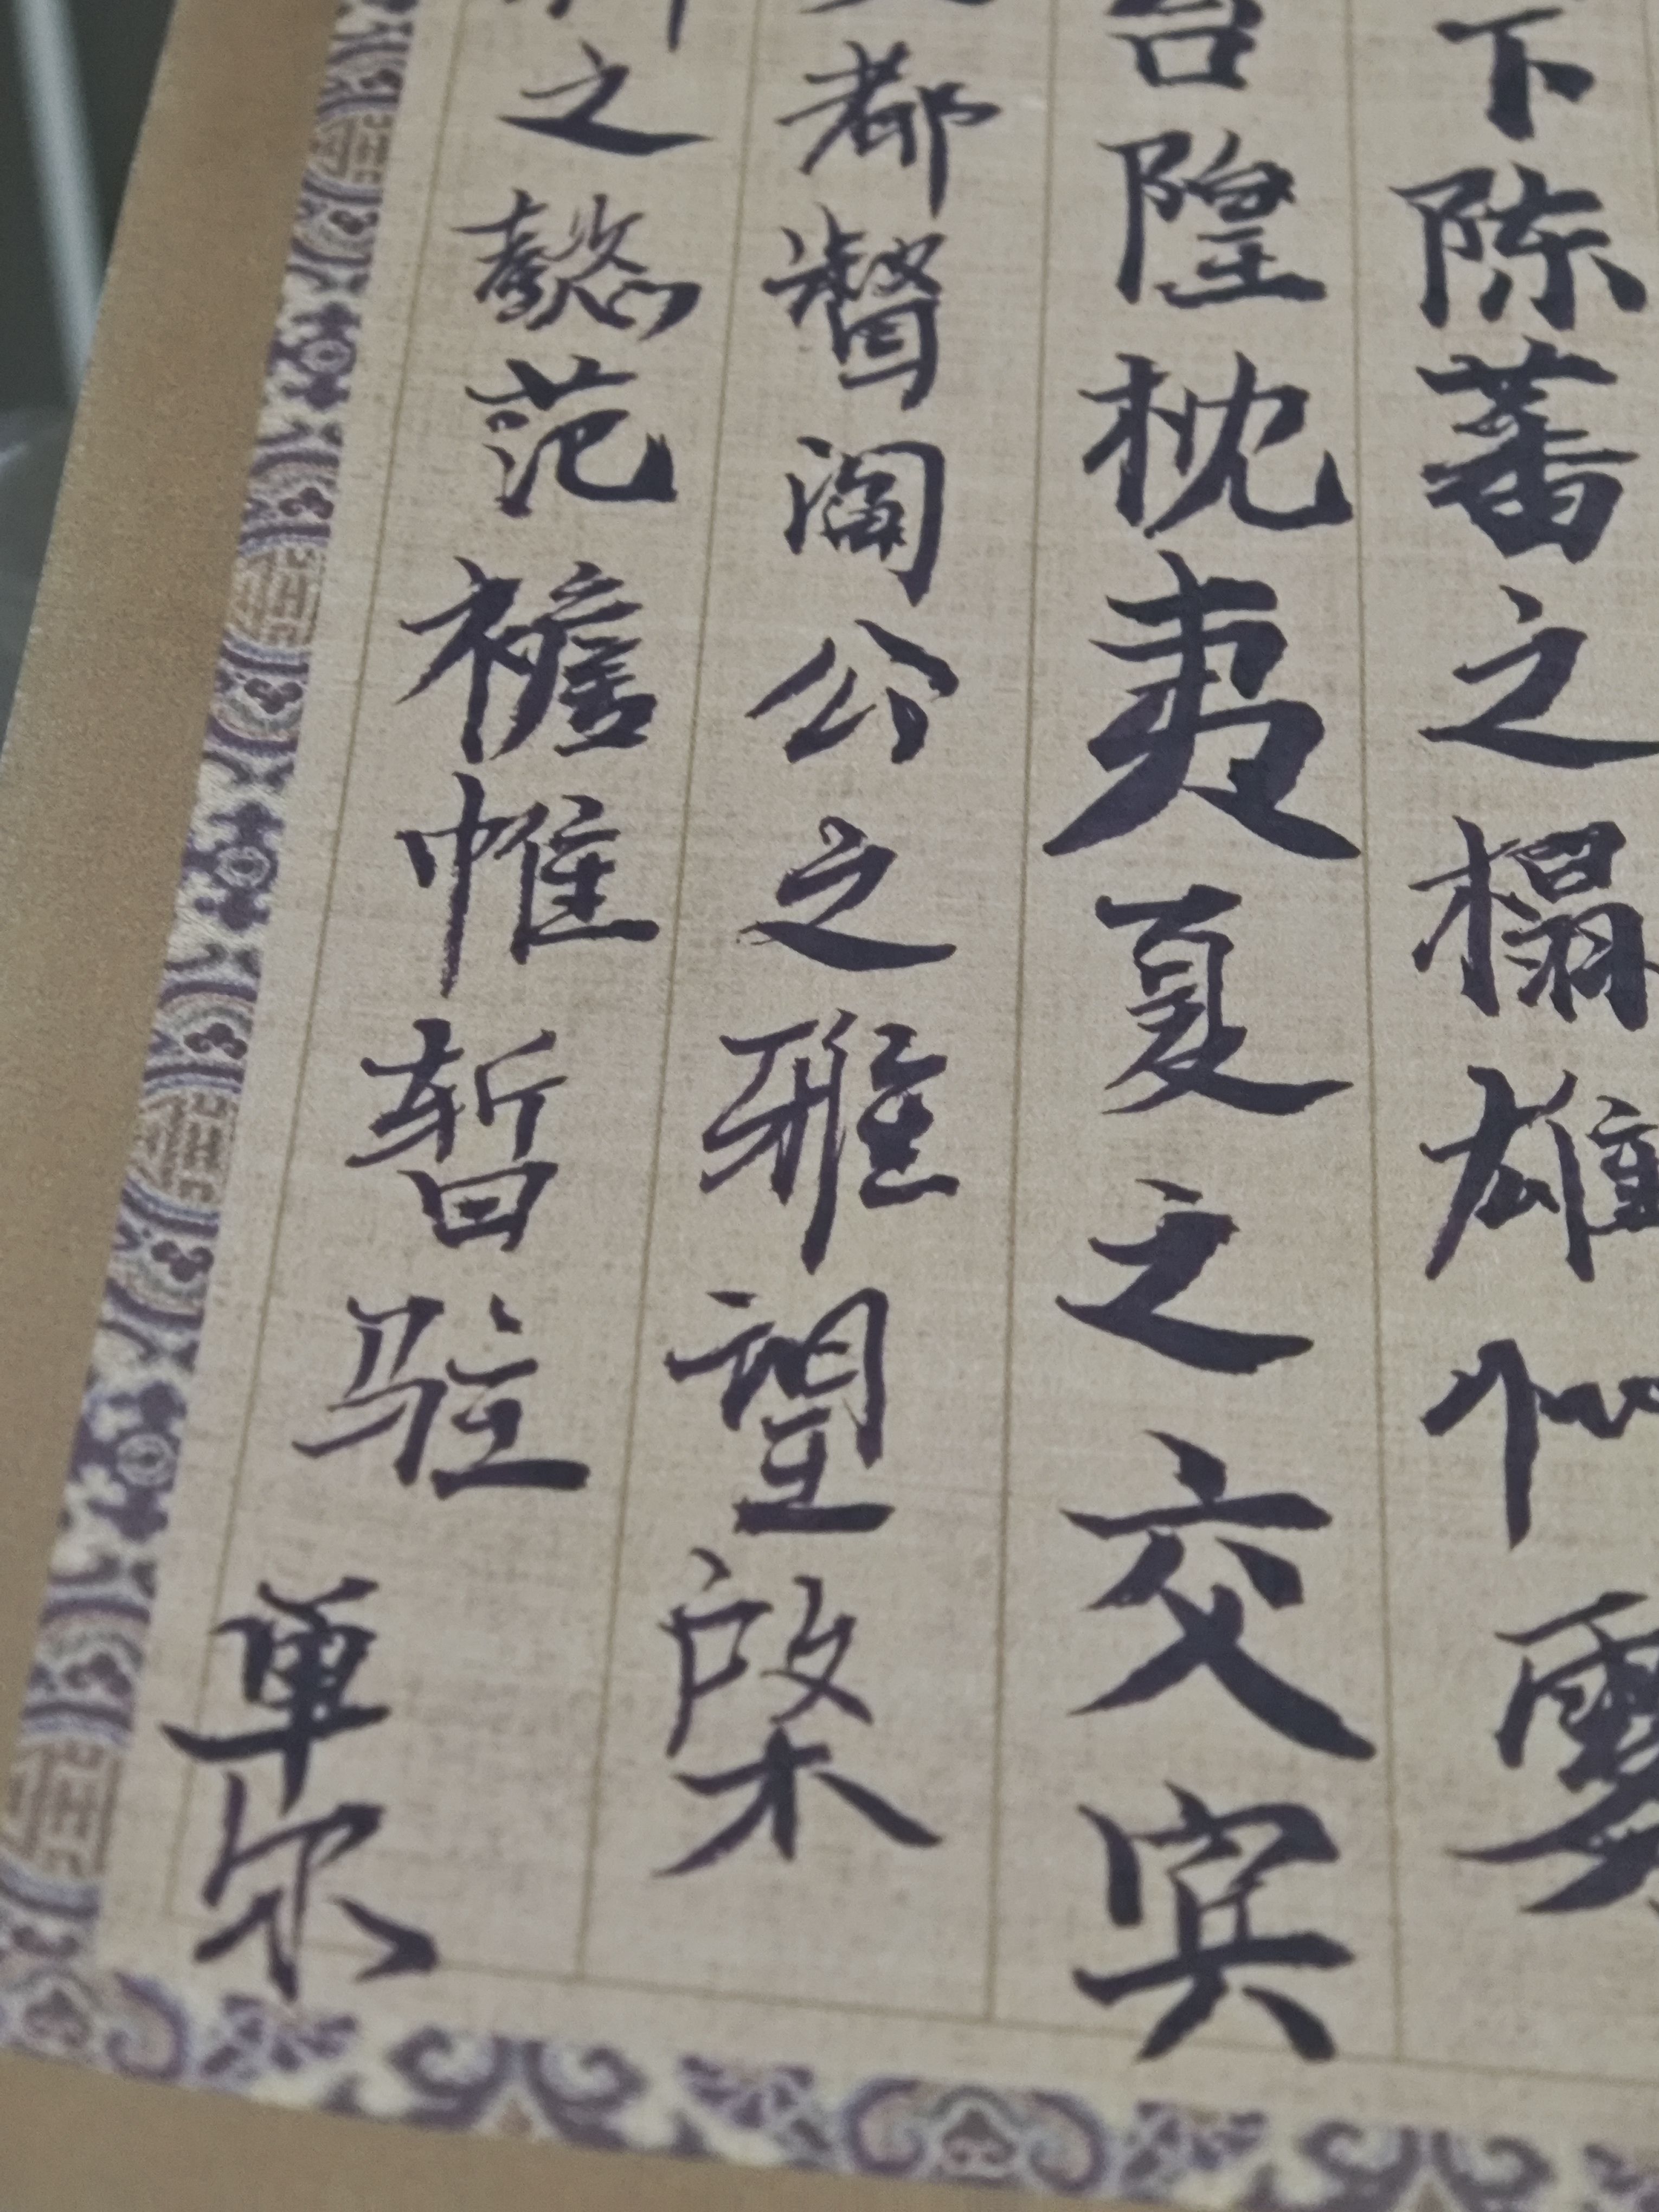 下陈蕃之榻雄州雾
台隍枕夷夏之交宾
都督阎公之雅望棨
之懿范襜帷暂驻
单尔